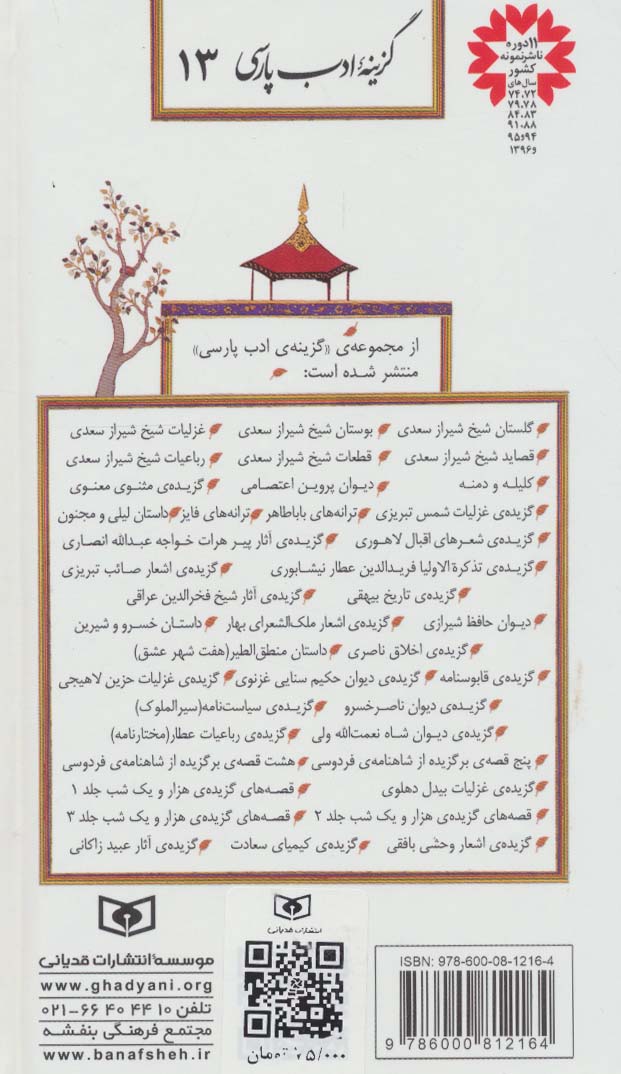 گزینهٔ ادب پارسی ۱۳
۱۱ دوره
ناشر نمونه
کشور
سال‌های
۷۴.۷۲
۷۹.۷۸
۸۴.۸۳
۹۱.۸۸
۹۴و۹۵
و۱۳۹۶
از مجموعه‌ی «گزینه‌ی ادب پارسی»
منتشر شده است:
گلستان شیخ شیراز سعدی بوستان شیخ شیراز سعدی غزلیات شیخ شیراز سعدی
قصاید شیخ شیراز سعدی قطعات شیخ شیراز سعدی رباعیات شیخ شیراز سعدی
کلیله و دمنه دیوان پروین اعتصامی گزیده‌ی مثنوی معنوی
گزیده‌ی غزلیات شمس تبریزی ترانه‌های باباطاهر ترانه‌های فایز داستان لیلی و مجنون
گزیده‌ی شعرهای اقبال لاهوری گزیده‌ی آثار پیر هرات خواجه عبدالله انصاری
گزیده‌ی تذکرة الاولیا فریدالدین عطار نیشابوری گزیده‌ی اشعار صائب تبریزی
گزیده‌ی تاریخ بیهقی گزیده‌ی آثار شیخ فخرالدین عراقی
دیوان حافظ شیرازی گزیده‌ی اشعار ملک‌الشعرای بهار داستان خسرو و شیرین
گزیده‌ی اخلاق ناصری داستان منطق‌الطیر(هفت شهر عشق)
گزیده‌ی قابوسنامه گزیده‌ی دیوان حکیم سنایی غزنوی گزیده‌ی غزلیات حزین لاهیجی
گزیده‌ی دیوان ناصرخسرو گزیده‌ی سیاست‌نامه(سیرالملوک)
گزیده‌ی دیوان شاه نعمت‌الله ولی گزیده‌ی رباعیات عطار(مختارنامه)
پنج قصه‌ی برگزیده از شاهنامه‌ی فردوسی هشت قصه‌ی برگزیده از شاهنامه‌ی فردوسی
گزیده‌ی غزلیات بیدل دهلوی قصه‌های گزیده‌ی هزار و یک شب جلد ۱
قصه‌های گزیده‌ی هزار و یک شب جلد ۲ قصه‌های گزیده‌ی هزار و یک شب جلد ۳
گزیده‌ی اشعار وحشی بافقی گزیده‌ی کیمیای سعادت گزیده‌ی آثار عبید زاکانی
موسسهٔ انتشارات قدیانی
www.ghadyani.org
تلفن ۱۰ ۴۴ ۴۰ ۶۶-۰۲۱
مجتمع فرهنگی بنفشه
www.banafsheh.ir
انتشارات قدیانی
۵/۰۰۰ تومان
ISBN: 978-600-08-1216-4
9 786000 812164